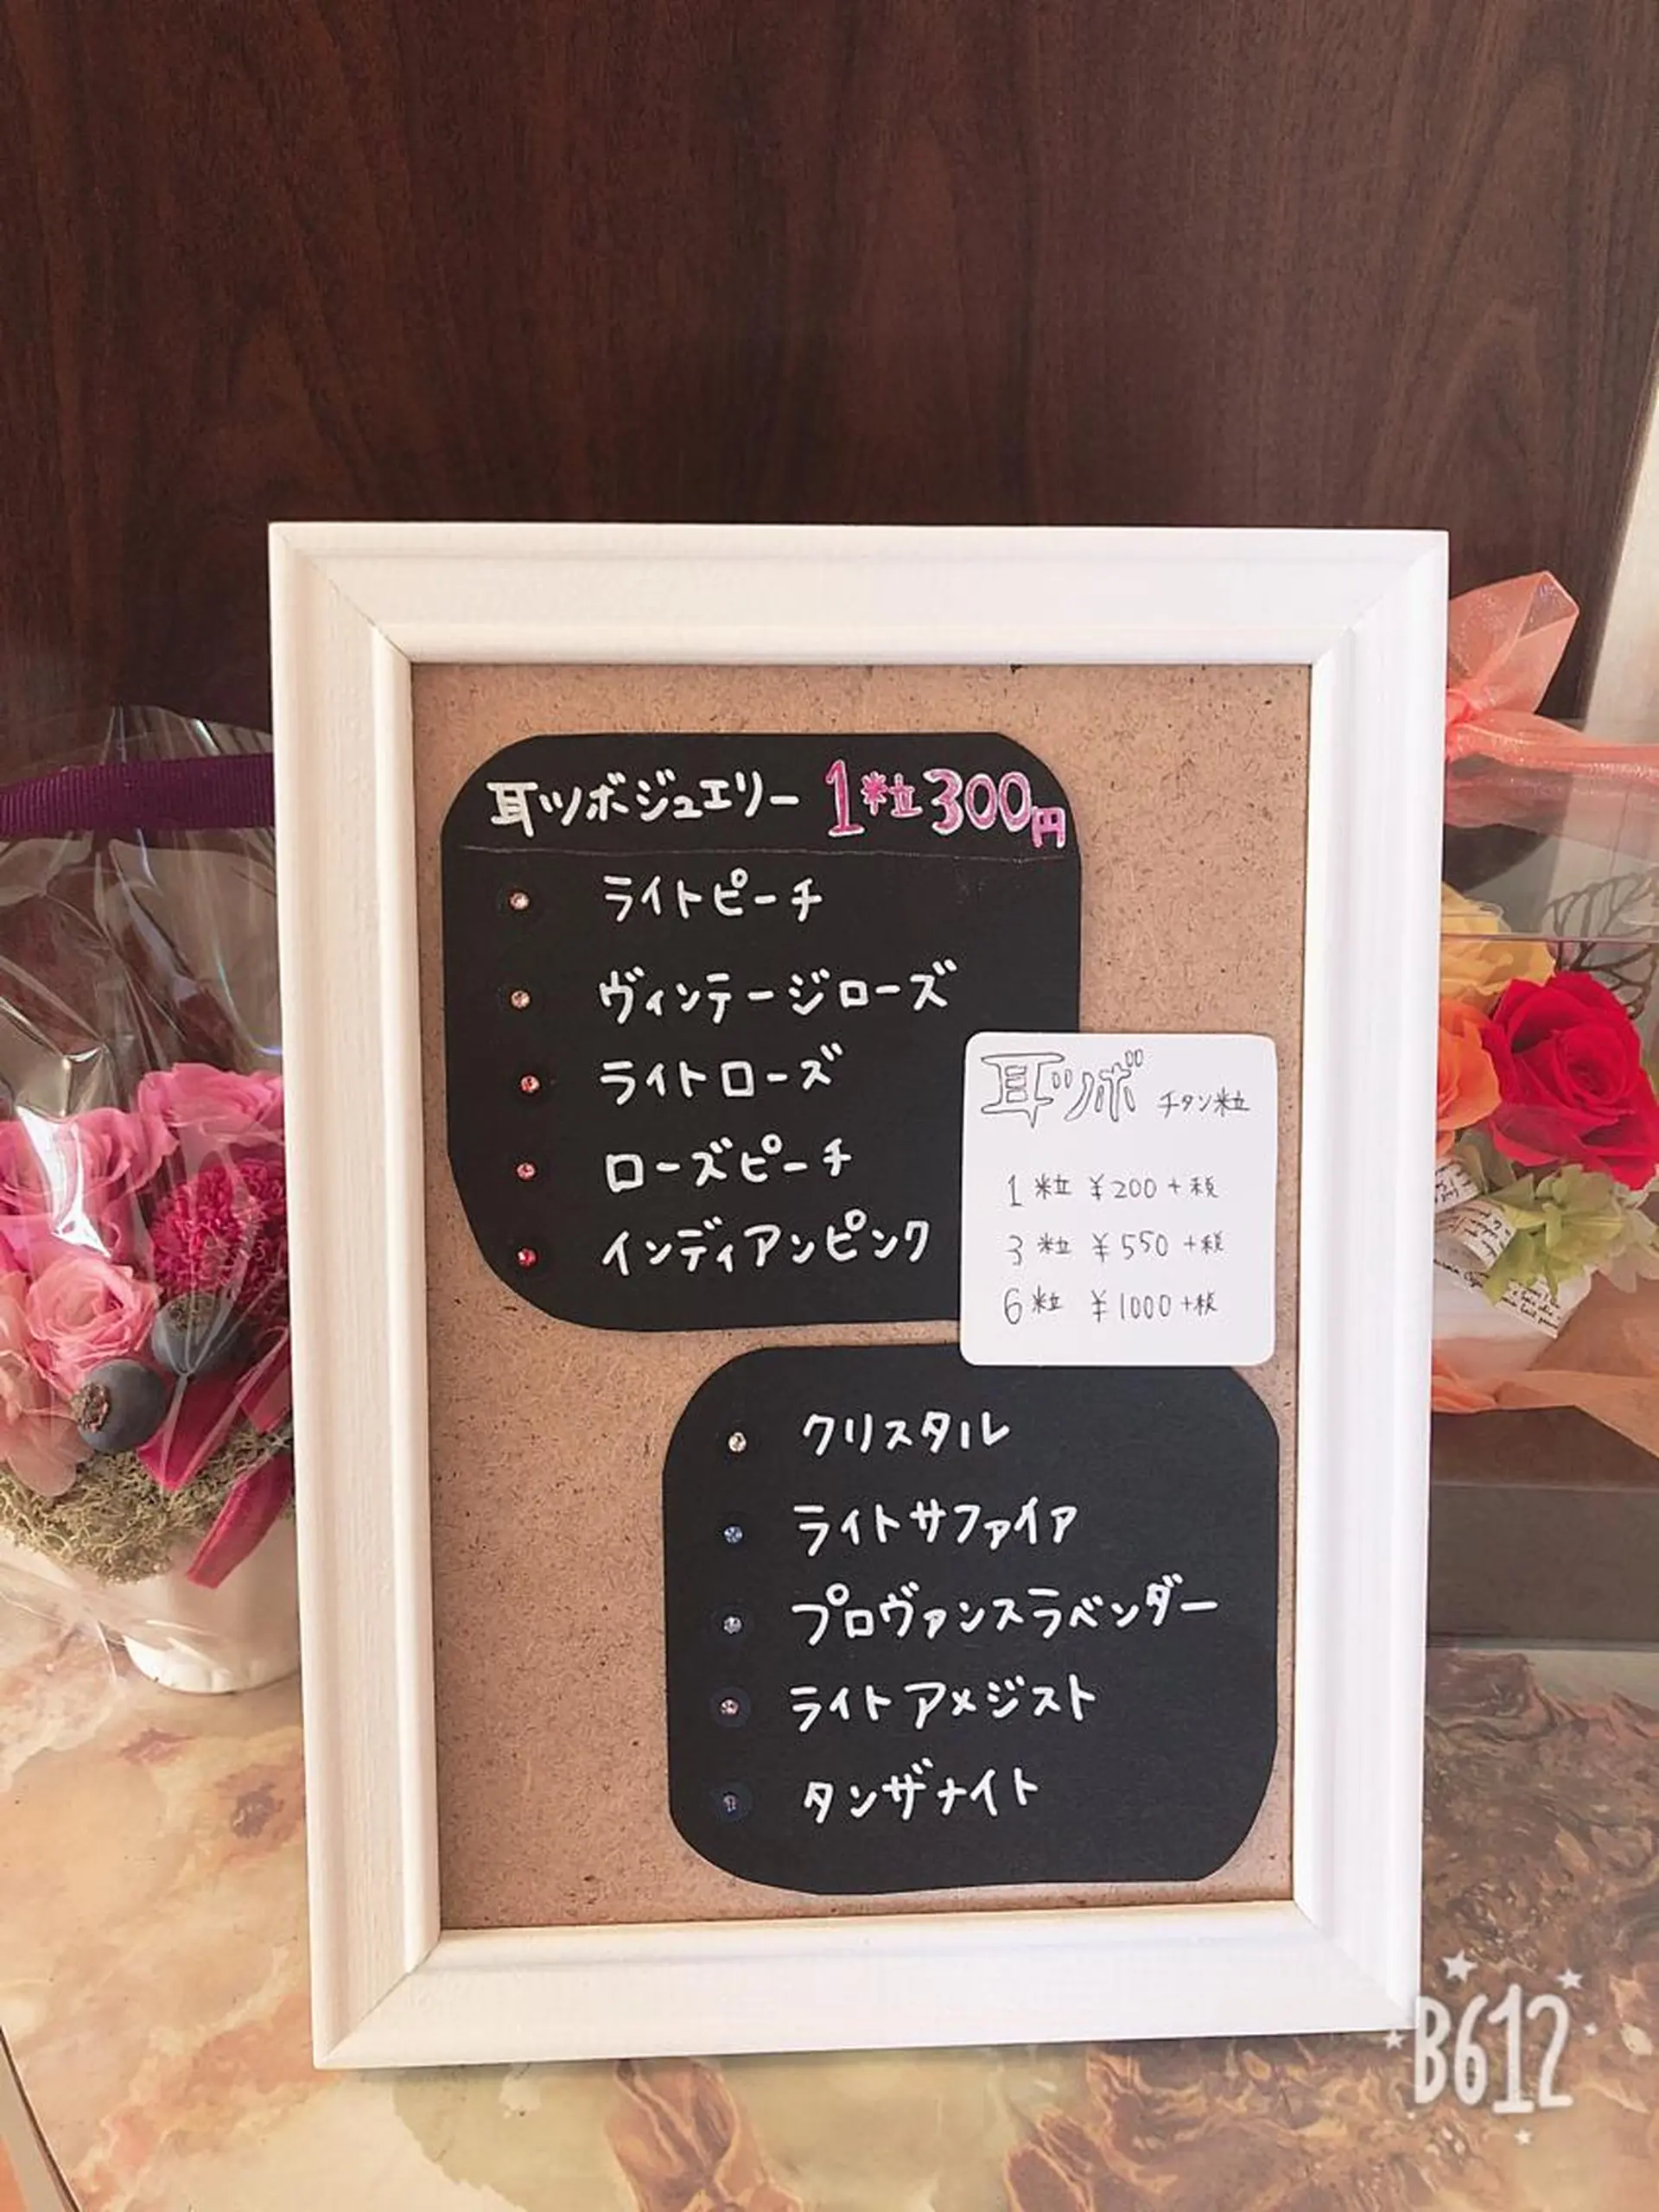 耳ツボジュエリー 1粒300円
ライトピーチ
ヴィンテージローズ
ライトローズ
ローズピーチ
インディアンピンク
耳ツボ チタン粒
1粒 ¥200+税
3粒 ¥550+税
6粒 ¥1000+税
クリスタル
ライトサファイア
プロヴァンスラベンダー
ライトアメジスト
タンザナイト
B612